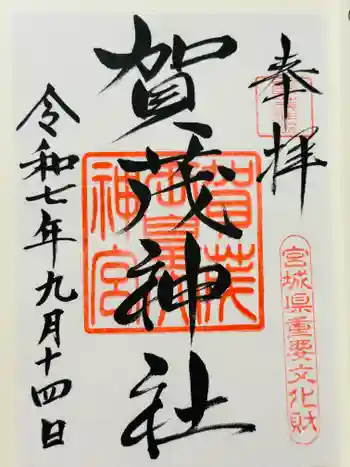 奉拝
宮城県重要文化財
賀茂神社
令和七年九月十四日